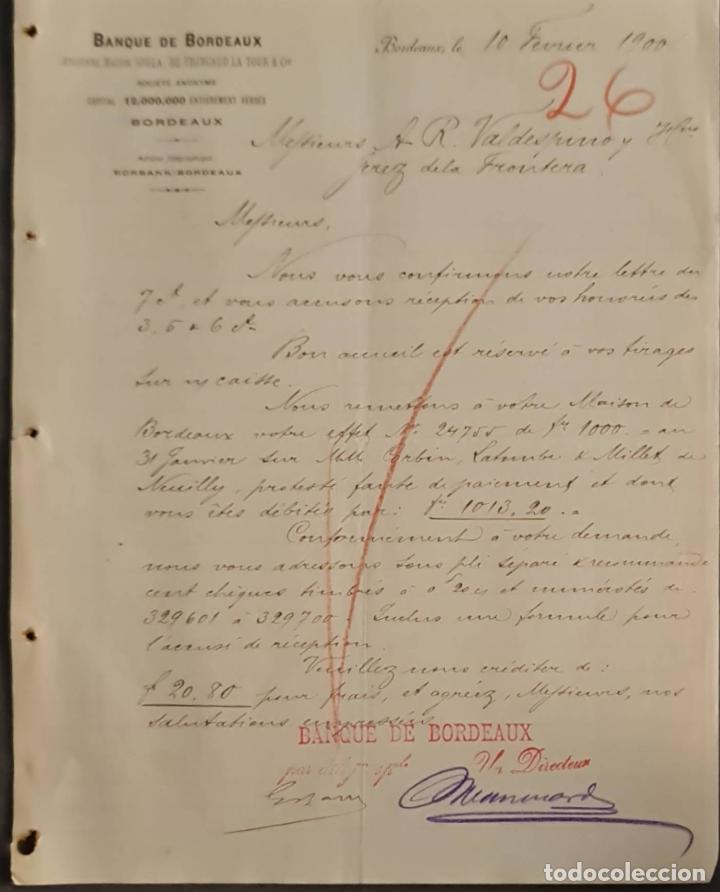 BANQUE DE BORDEAUX
SOCIÉTÉ ANONYME
CAPITAL 12,000,000 ENTIÈREMENT VERSÉS
BORDEAUX
BORBANK-BORDEAUX
Bordeaux, le 10 Février 1900
26
Messieurs A. R. Valdespino y
Jerez de la Frontera.
Messieurs,
Nous vous confirmons notre lettre du
7 ct. et vous accusons réception de vos honorées des
3, 5 & 6 ct.
Bon accueil est réservé à vos tirages
sur n/ caisse.
Nous remettons à votre Maison de
Bordeaux votre effet No. 24755 de fr 1000 = au
31 Janvier sur MM. Corbin, Latombe & Millet de
Neuilly, protesté faute de paiement et dont
vous êtes débités par: fr. 1013.20.=
Conformément à votre demande
nous vous adressons sous pli séparé & recommandé
cent chèques timbrés à et numérotés de
329601 à 329700. Inclus une formule pour
l'accusé de réception.
Veuillez nous créditer de:
f 20.80 pour frais, et agréez, Messieurs, nos
salutations empressées
BANQUE DE BORDEAUX
Directeur
todocoleccion.net